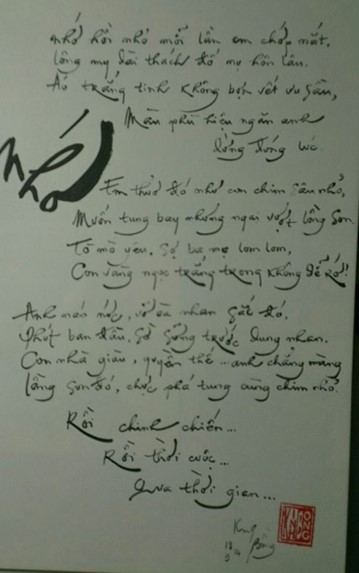 nhớ hồi nhỏ mỗi lần em chớp mắt,
lông my dài thách đố nụ hôn lâu.
Áo trắng tinh không bợn vết ưu sầu,
Màu phù hiệu ngăn anh
lóng ngóng
Nhớ
Em thuở đó như con chim sâu nhỏ,
Muốn tung bay nhưng ngại vượt lồng son.
Tò mò yêu, sợ ba mẹ lom lom,
Con vàng ngọc trắng trong không dễ rớ!
Anh náo nức, vỡ oà nhan sắc đó,
Phút ban đầu, sờ sững trước dung nhan.
Con nhà giàu, quyền thế... anh chẳng màng
lồng son đó, chực phá tung cùng chim nhỏ.
Rồi chinh chiến...
Rồi thời cuộc...
Qua thời gian...